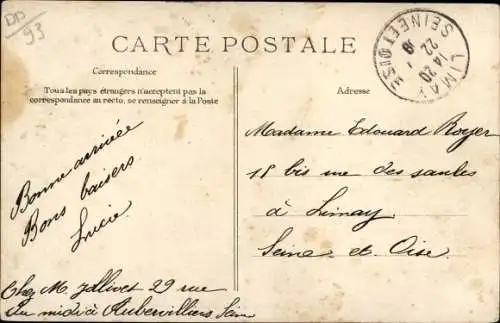 DD
93
CARTE POSTALE
Correspondance
Tous les pays étrangers n'acceptent pas la
correspondance au recto, se renseigner à la Poste
Bonne arrivée
Bons baisers
Lucie
Chez M. 29 rue
du midi à Aubervilliers Seine
LIMAY
SEINE ET OISE
14 20
22
Adresse
Madame Edouard Royer
18 bis rue des saules
à Limay
Seine et Oise.